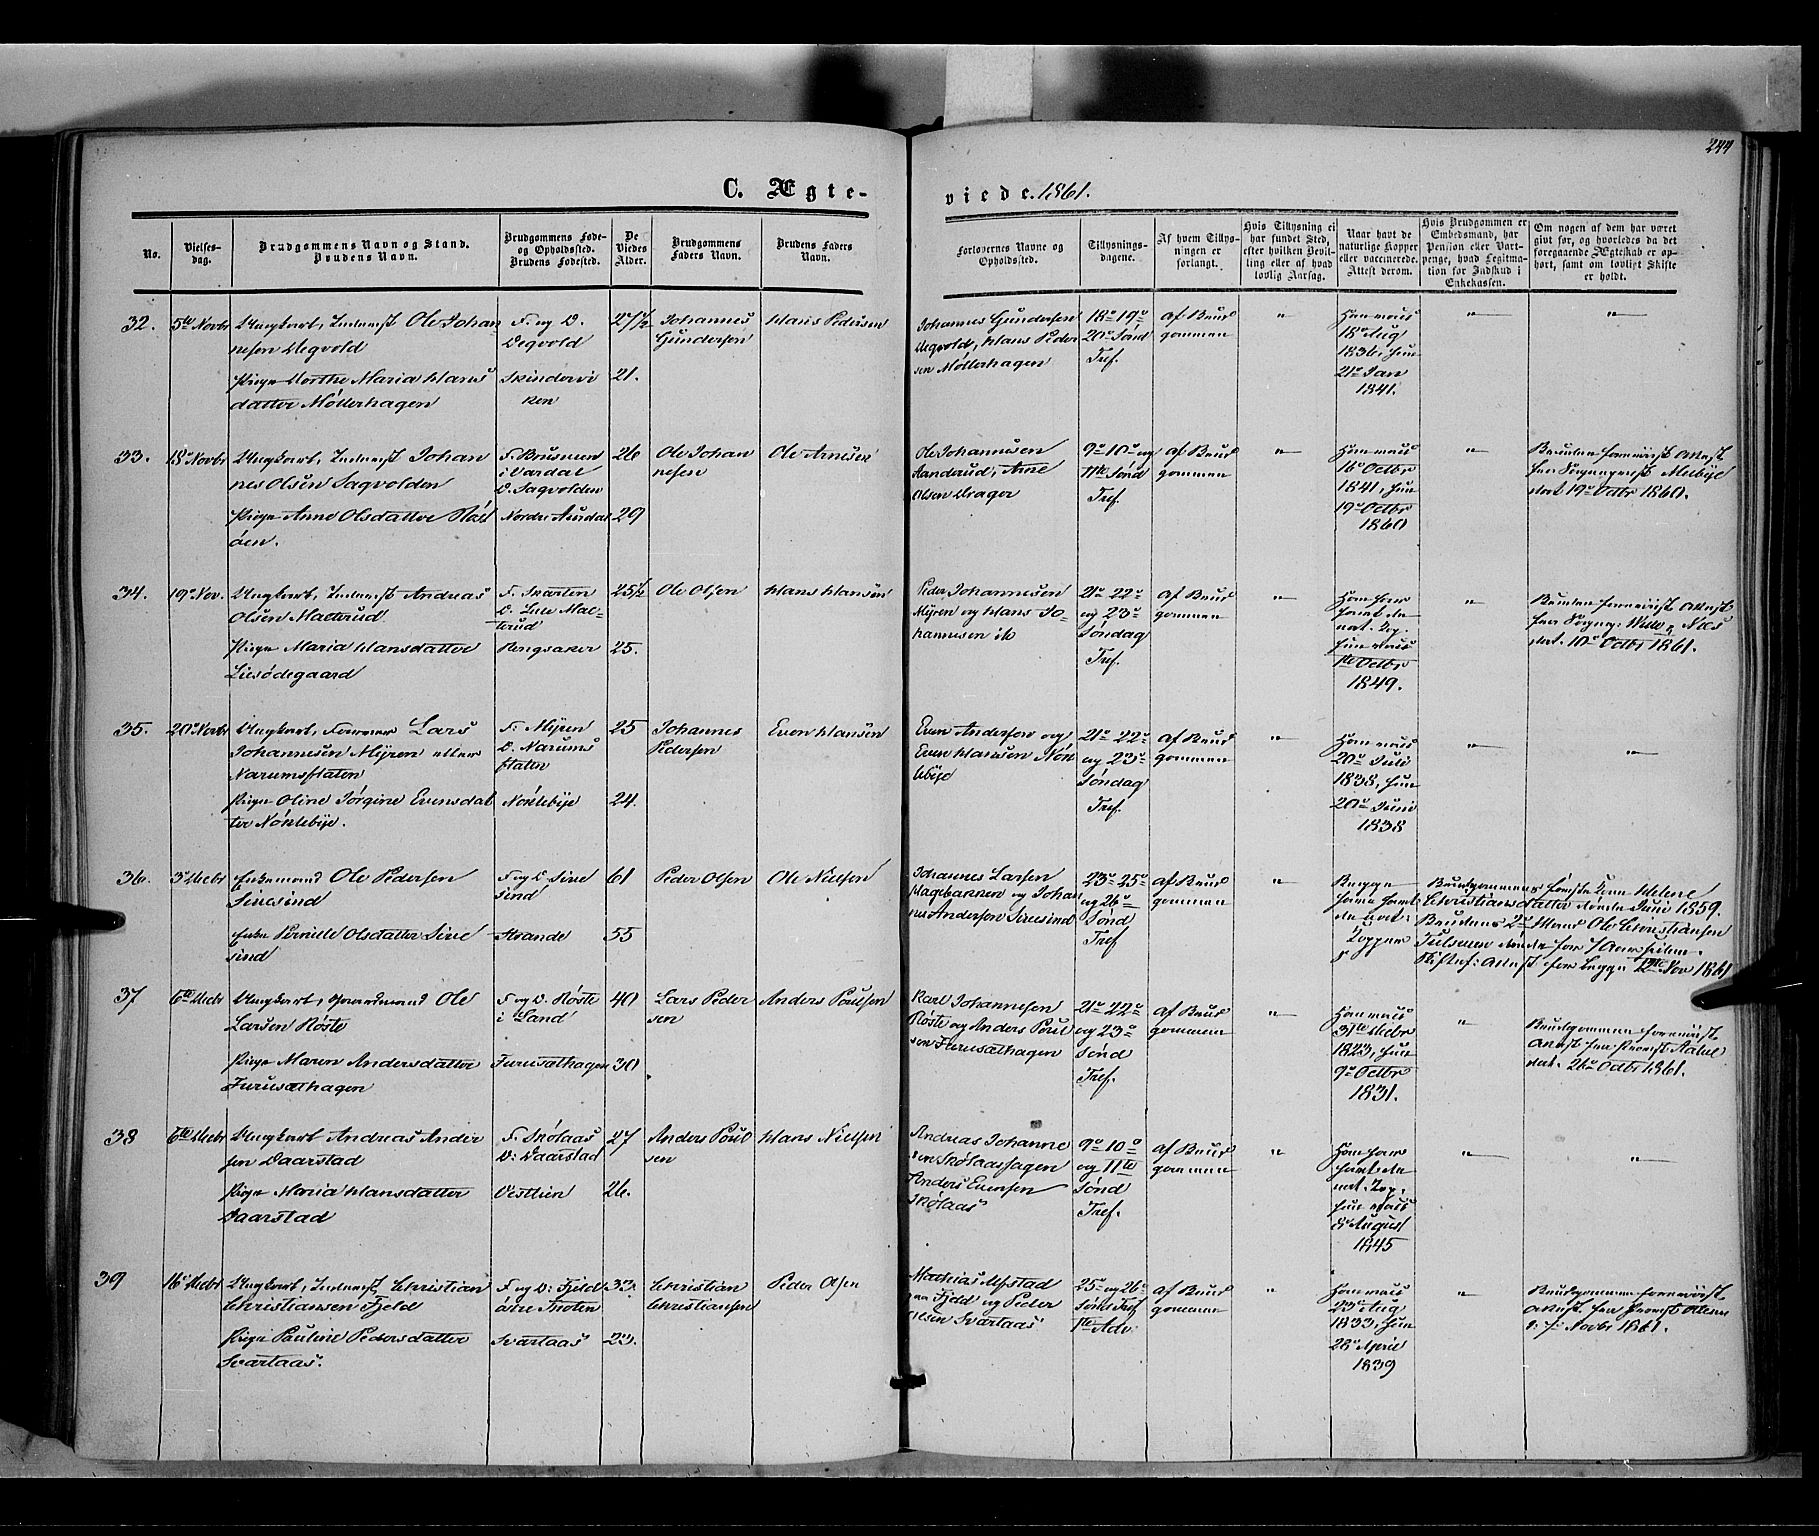 244
C. Ægte-
viede. 1861.
No.
Vielses-
dag.
Brudgommens Navn og Stand.
Brudens Navn.
Brudgommens Føde-
og Opholdssted.
Brudens Fødested.
De
Viedes
Alder.
Brudgommens
Faders Navn.
Brudens Faders
Navn.
Forlovernes Navne og
Opholdssted.
Tillysnings-
dagene.
Af hvem Tillys-
ningen er
forlangt.
Hvis Tillysning ei
har fundet Sted,
efter hvilken Bevil-
ling eller af hvad
lovlig Aarsag.
Naar havt de
naturlige Kopper
eller vaccinerede.
Attest derom.
Hvis Brudgommen er
Embedsmand, har
Pension eller Vart-
penge, hvad Legitima-
tion for Indskud i
Enkekassen.
Om nogen af dem har været
givt før, og hvorledes da det
foregaaende Ægteskab er op-
hørt, samt om lovligt Skifte
er holdt.
32.
5te Novbr
Ungkarl, Inderst Ole Johan
nesen Degvold
Pige Marthe Maria Hans
datter Møllerhagen
F. og O.
Degvold
Skindervi
ken
27½
21.
Johannes
Gundersen
Hans Pedersen
Johannes Gundersen
Degvold, Hans Peder
sen Møllerhagen
18de 19de
20de Sønd
Tref.
af Brud
gommen
"
Ham vacc
18de Aug
1836, hun
21de Jan
1841.
"
"
33.
18de Novbr
Ungkarl, Inderst Johan
nes Olsen Sagvolden
Pige Anne Olsdatter Røst
øen.
F. Brusveen
i Vardal
O. Sagvolden
Nordre Aurdal
26
29
Ole Johan
nesen
Ole Arnesen
Ole Johannesen
Sanderud, Arne
Olsen Drager
9de 10de og
11te Sønd
Tref.
af Brud
gommen
"
Ham vacc
16de Octbr
1841, hun
19de Octbr
1860
"
Bruden foreviist Attest
fra Sognepræst Melbye
dat 19de Octbr 1860.
34.
19de Nov.
Ungkarl, Inderst Andreas
Olsen Mæhrud
Pige Maria Hansdatter
Liesødegaard
Ringsaker
25½
25.
Ole Olsen
Hans Hansen
Peder Johannesen
Myren og Hans Jo-
hannesen ib
21de 22de
og 23de
Søndag
Tref.
af Brud
gommen
"
Ham har
havt de
nat. Kop.
hun vacc
1ste Octbr
1849.
"
Bruden foreviist Attest
dat. 10de Octbr 1861.
35.
20de Novbr
Ungkarl, Lars
Johannesen Myren eller
Narumsflaten
Pige Oline Jørgine Evensdat
ter Nøklebye.
F. Myren
O. Narums
flaten
Nøklebye
25
24.
Johannes
Pedersen
Even Hansen
Even Andersen og
Even Hansen Nøk
lebye
21de 22de
og 23de
Søndag
Tref.
af Brud
gommen
"
Ham vacc
20de Juli
1838, hun
20de Juni
1838
"
"
36.
3die Decbr
Enkemand Ole Pedersen
Sivesind
Enke Pernille Olsdatter Sive
sind
F og O Sive
sind
Strande
61
55
Peder Olsen
Ole Nielsen
Johannes Larsen
Hagebakken og Johan
nes Andersen Sivesind
23de 25de
og 26de
Sønd
Tref
af Brud
gommen
"
Begge
have havt
de nat:
Kopper
Brudgommens første Kone Helene
Christiansdatter døde Juni 1859.
Brudens 2de Mand Ole Christiansen
døde for 7 Aar siden.
Skiftef: Attest for begge 12te Nov 1861
37
6te Decbr
Ungkarl, Gaardmand Ole
Larsen Røste
Pige Maren Andersdatter
Furusæthagen
F og O. Røste
i Land
Furusæthagen
40
30
Lars Peder
sen
Anders Poulsen
Karl Johannesen
Røste og Anders Poul
sen Furusæthagen
21de 22de
og 23de
Sønd
Tref.
af Brud
gommen
"
Ham vacc
31te Decbr
1823, hun
9de Octbr
1831.
"
Brudgommen foreviist
Attest fra Provst Aabel
dat. 26de Octbr 1861.
38
6te Decbr
Ungkarl Andreas Ander
sen Daarstad
Pige Maria Hansdatter
Daarstad
F. Skølaas
O: Daarstad
Vestlien
27
26.
Anders Poul
sen
Hans Nielsen
Andreas Johanne
sen Skølaashagen
Anders Evensen
Skølaas
9de 10de
og 11te
Sønd
Tref.
af Brud
gommen
"
Ham har
havt de
nat. Kop.
hun vacc
8de August
1845
"
"
39
16de Decbr
Ungkarl, Inderst Christian
Christiansen Fjeld
Pige Pauline Pedersdatter
Svartaas.
F og O: Fjeld
østre Thoten
Svartaas
33.
23.
Christian
Christiansen
Peder Olsen
Mathias Alfstad
paa Fjeld og Peder
Olsen Svartaas
25de og 26de
Sønd Tref
1ste Adv:
af Brud
gommen
"
Ham vacc
23de Aug
1833, hun
28de April
1839
"
Brudgommen foreviist
Attest fra Provst
d: 7: Novbr 1861.